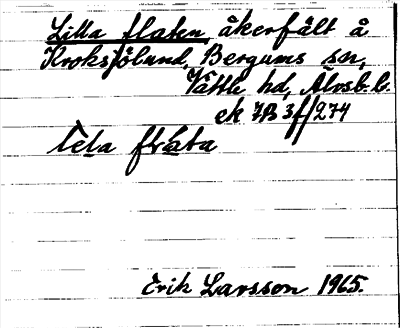 Lilla flaten åkerfält å
Kroksjölund, Bergums sn,
Vättle hd, Älvsb. l.
ek 7B 3f/274
Erik Larsson 1965.